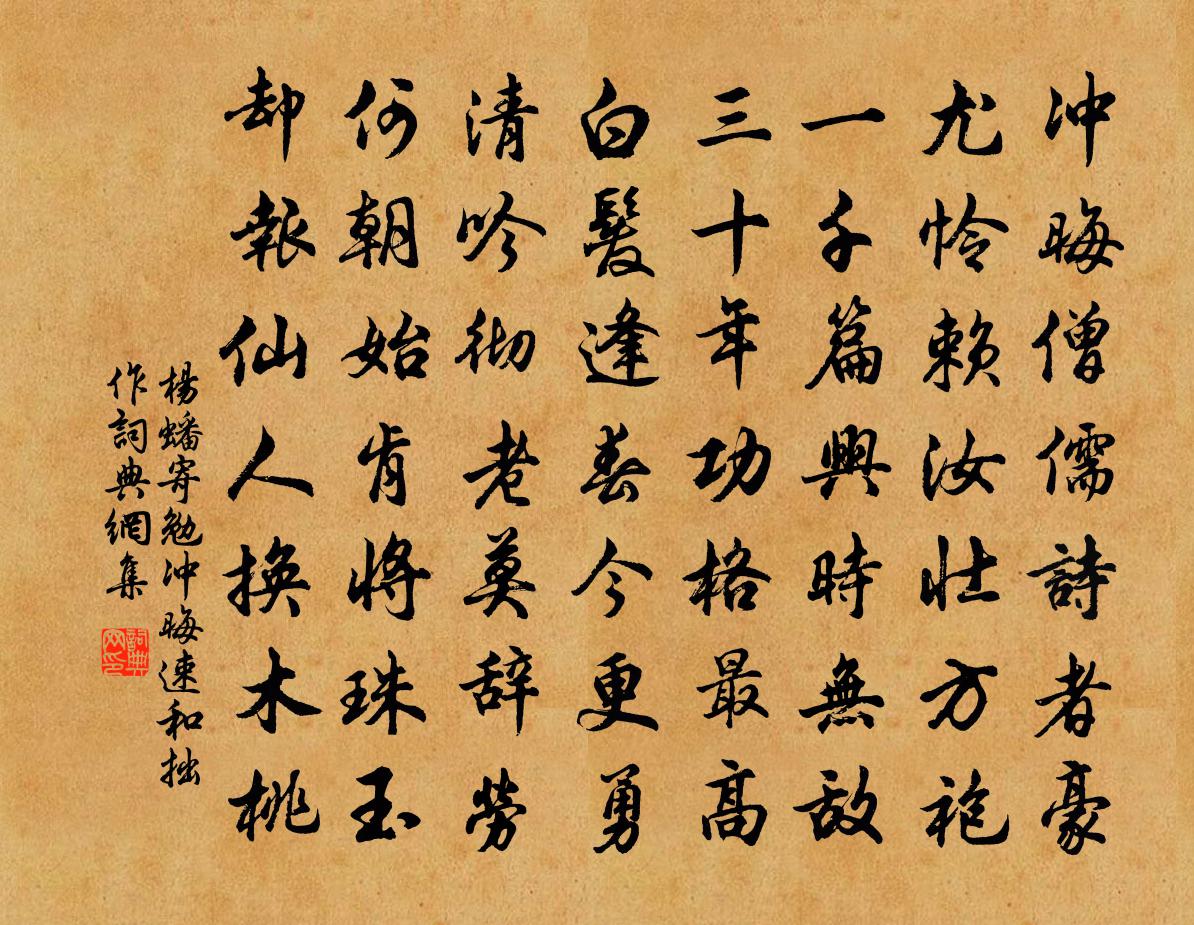 冲晦僧儒詩者豪
尤怜賴汝壯方袍
一千篇興時無敵
三十年功格最高
白髮逢春今更勇
清吟彻老莫辞勞
何朝始肯將珠玉
却報仙人換木桃
楊蟠寄勉冲晦速和拙
作詞典網集
詞典网印